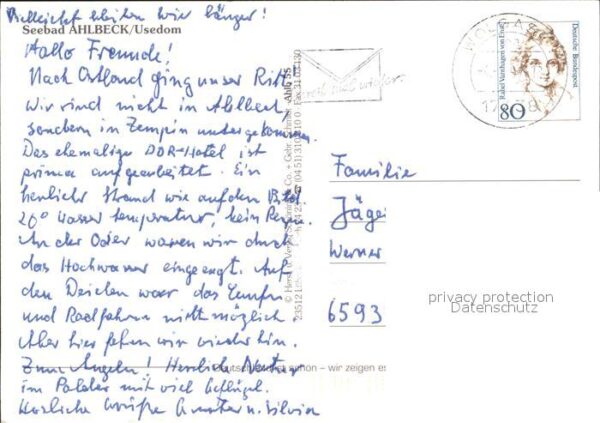 Vielleicht bleiben wir länger!
Seebad AHLBECK/Usedom
Hallo Freunde!
Nach Ostland ging unser Ritt
Wir sind nicht in Ahlbeck
sondern in Zempin untergekommen.
Das ehemalige DDR-Hotel ist
prima aufgearbeitet. Ein
herrlicher Strand wie auf dem Bild
20° Wassertemperatur, kein Regen.
An der Oder waren wir durch
das Hochwasser eingeengt. Auf
den Deichen war das Laufen
und Radfahren nicht möglich.
Aber hier fahren wir wieder hin.
Zum Angeln! Herrliche Natur
im Polder mit viel Geflügel.
Herzliche Grüße Gunter u. Silvia
schön – wir zeigen es
Ahlb 55
WOLGAST
Rahel Varnhagen von Ense
Deutsche Bundespost
80
Familie
Jäger
Werner
6593
privacy protection
Datenschutz